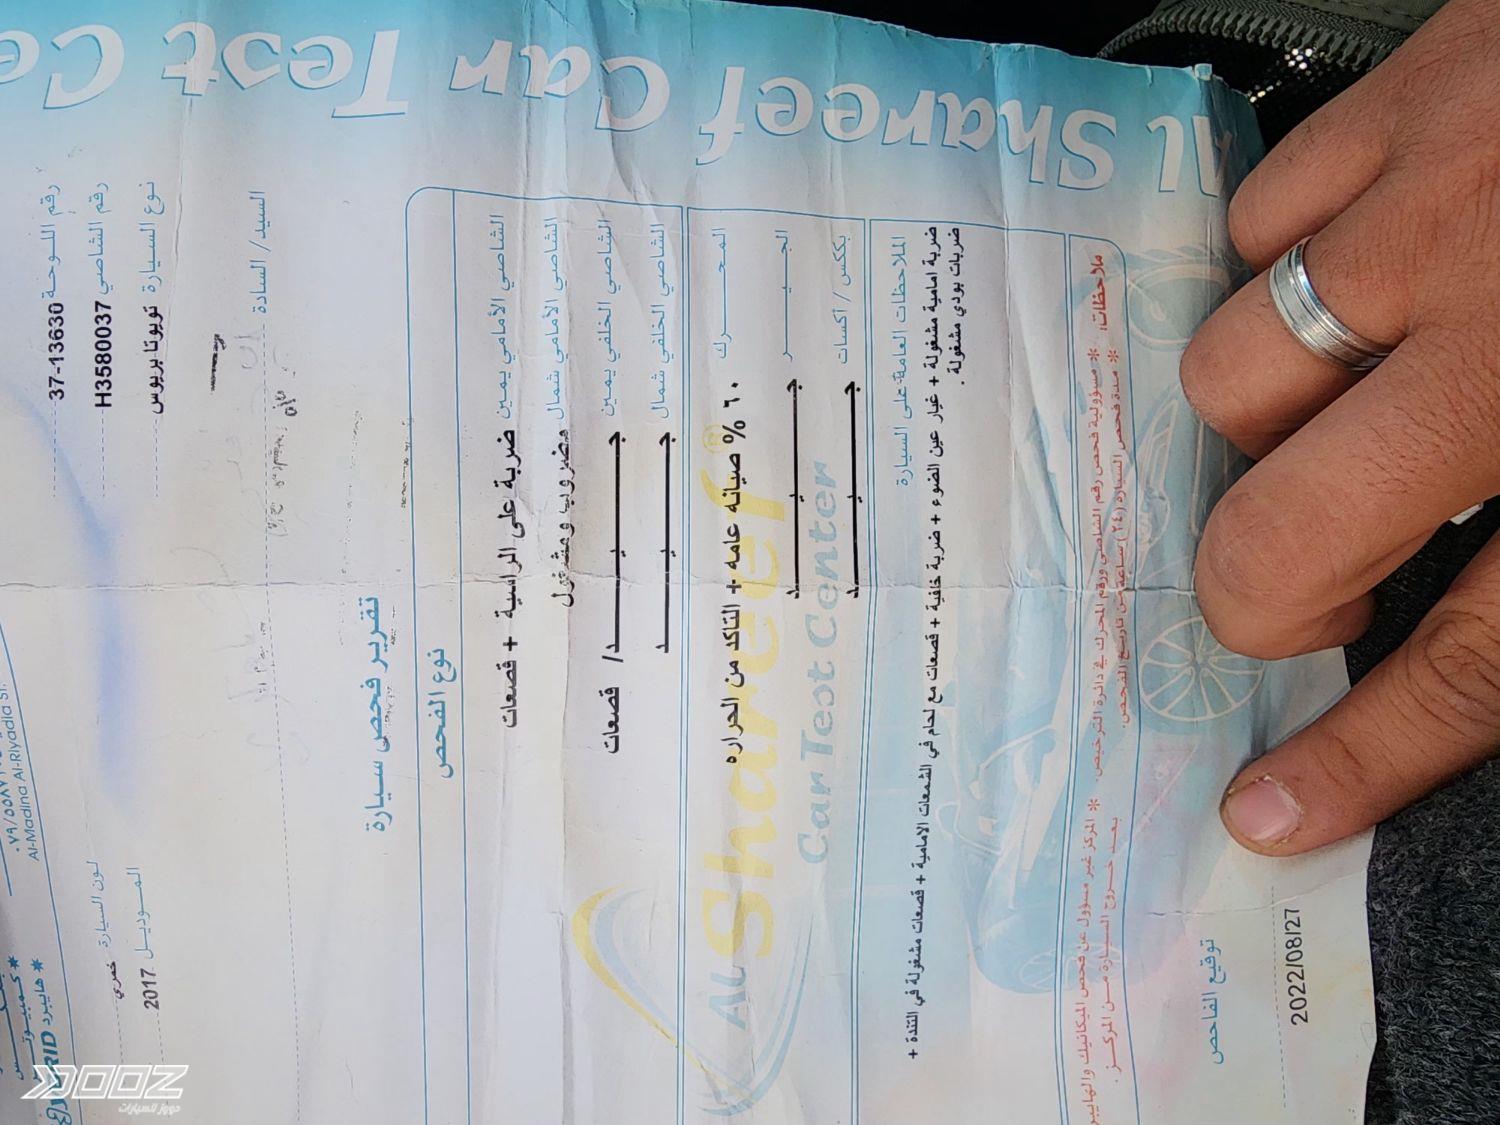 Al Shareef Car Test Ce
٠٧٩/٥٥٨٧
Al-Madina Al-Riyadia St.
* كمبيوتر
* هايبرد RID
رقم اللوحة 37-13630
رقم الشاصي H3580037
لون السيارة خمري
نوع السيارة تويوتا بريوس
الموديل 2017
السيد/ السادة
تقرير فحص سيارة
نوع الفحص
الشاصي الأمامي يمين ضربة على الراسية + قصعات
الشاصي الأمامي شمال مضروب ومشغول
الشاصي الخلفي يمين جـــيـــد/ قصعات
الشاصي الخلفي شمال جـــيـــد
المحـــرك ٦٠ % صيانه عامه + التاكد من الحراره
الجـــيـــر جـــيـــد
بكس / اكسات جـــيـــد
AL Shareef
Car Test Center
الملاحظات العامة على السيارة
ضربة امامية مشغولة + غيار عين الضوء + ضربة خلفية + قصعات مع لحام في الشمعات الامامية + قصعات مشغولة في التندة +
ضربات بودي مشغولة .
ملاحظات: * مسؤولية فحص رقم الشاصي ورقم المحرك في دائرة الترخيص. * المركز غير مسؤول عن فحص الميكانيك والهايبر
* مدة فحص السيارة (٢٤) ساعة من تاريخ الفحص. بعد خروج السيارة من المركز.
توقيع الفاحص
2022/08/27
DOOZ
دووز للسيارات